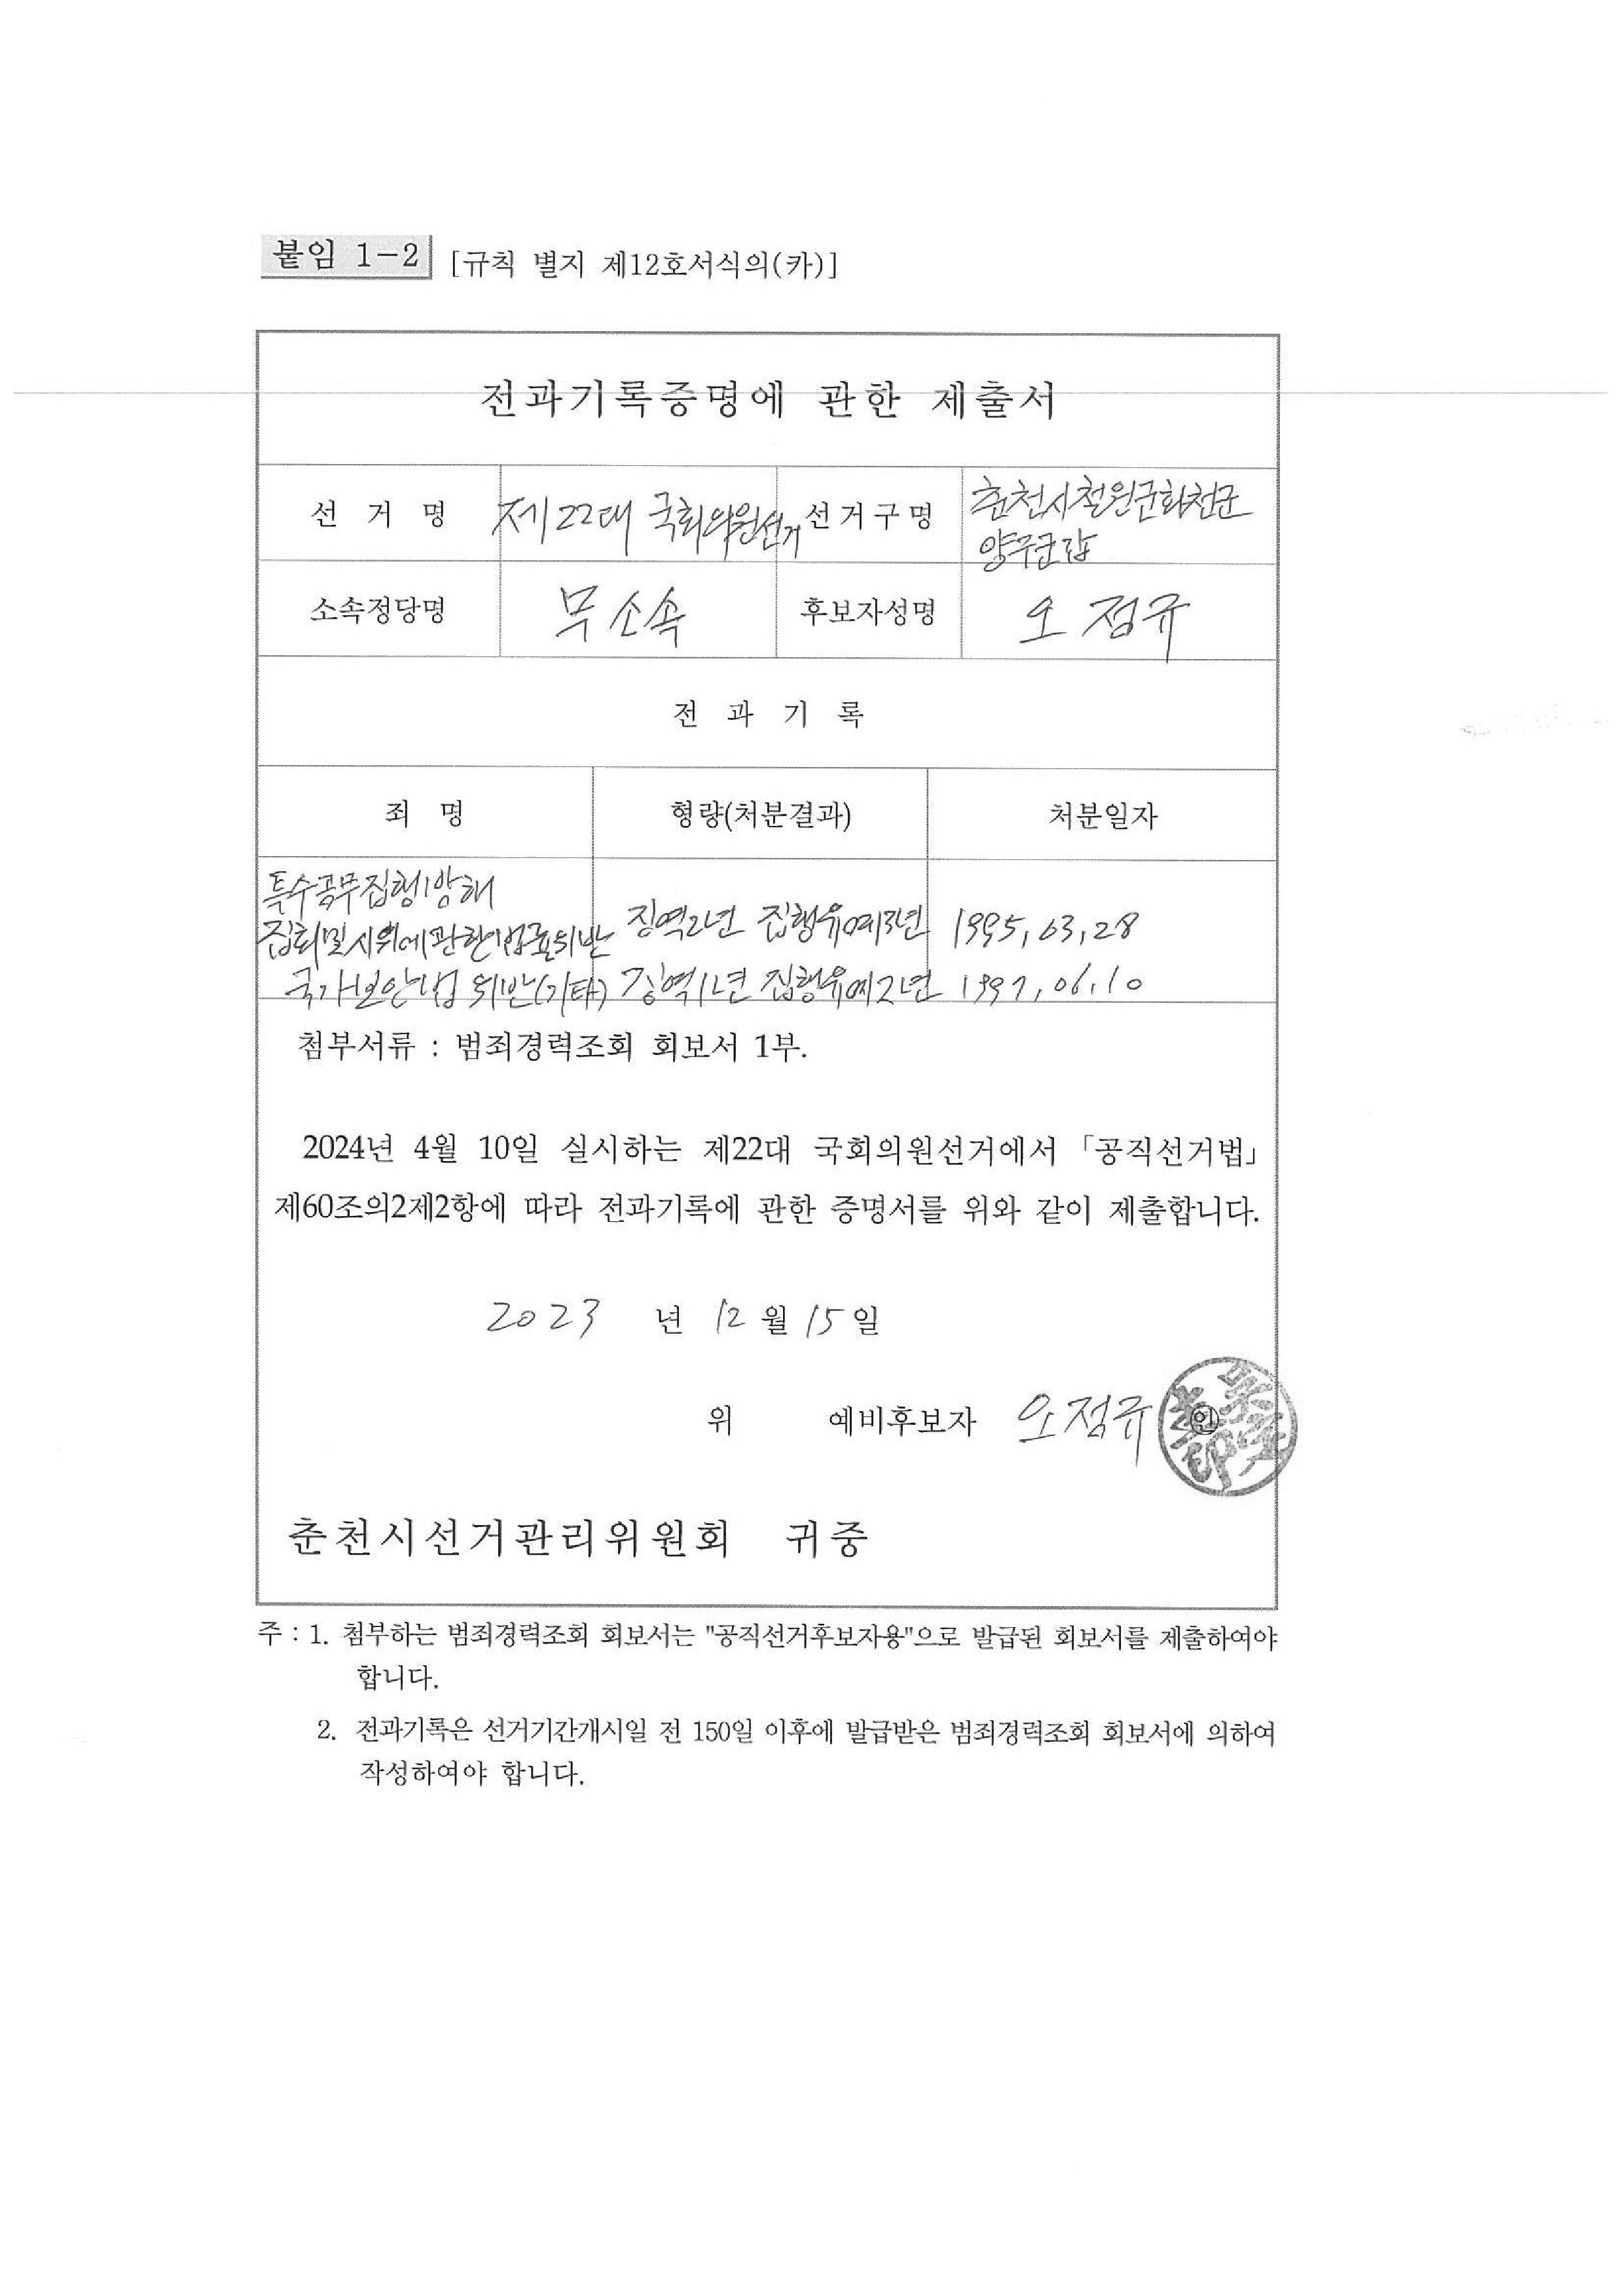 붙임 1-2 [규칙 별지 제12호서식의(카)]
전과기록증명에 관한 제출서
선 거 명 제22대 국회의원선거 선거구명 춘천시철원군화천군
양구군갑
소속정당명 무소속 후보자성명 오정규
전 과 기 록
죄 명 형량(처분결과) 처분일자
특수공무집행방해
집회및시위에관한법률위반 징역2년 집행유예3년 1995, 03, 28
국가보안법 위반(기타) 징역1년 집행유예2년 1997, 06, 10
첨부서류 : 범죄경력조회 회보서 1부.
2024년 4월 10일 실시하는 제22대 국회의원선거에서 「공직선거법」
제60조의2제2항에 따라 전과기록에 관한 증명서를 위와 같이 제출합니다.
2023 년 12 월 15 일
위 예비후보자 오정규 인
춘천시선거관리위원회 귀중
주 : 1. 첨부하는 범죄경력조회 회보서는 "공직선거후보자용"으로 발급된 회보서를 제출하여야
합니다.
2. 전과기록은 선거기간개시일 전 150일 이후에 발급받은 범죄경력조회 회보서에 의하여
작성하여야 합니다.